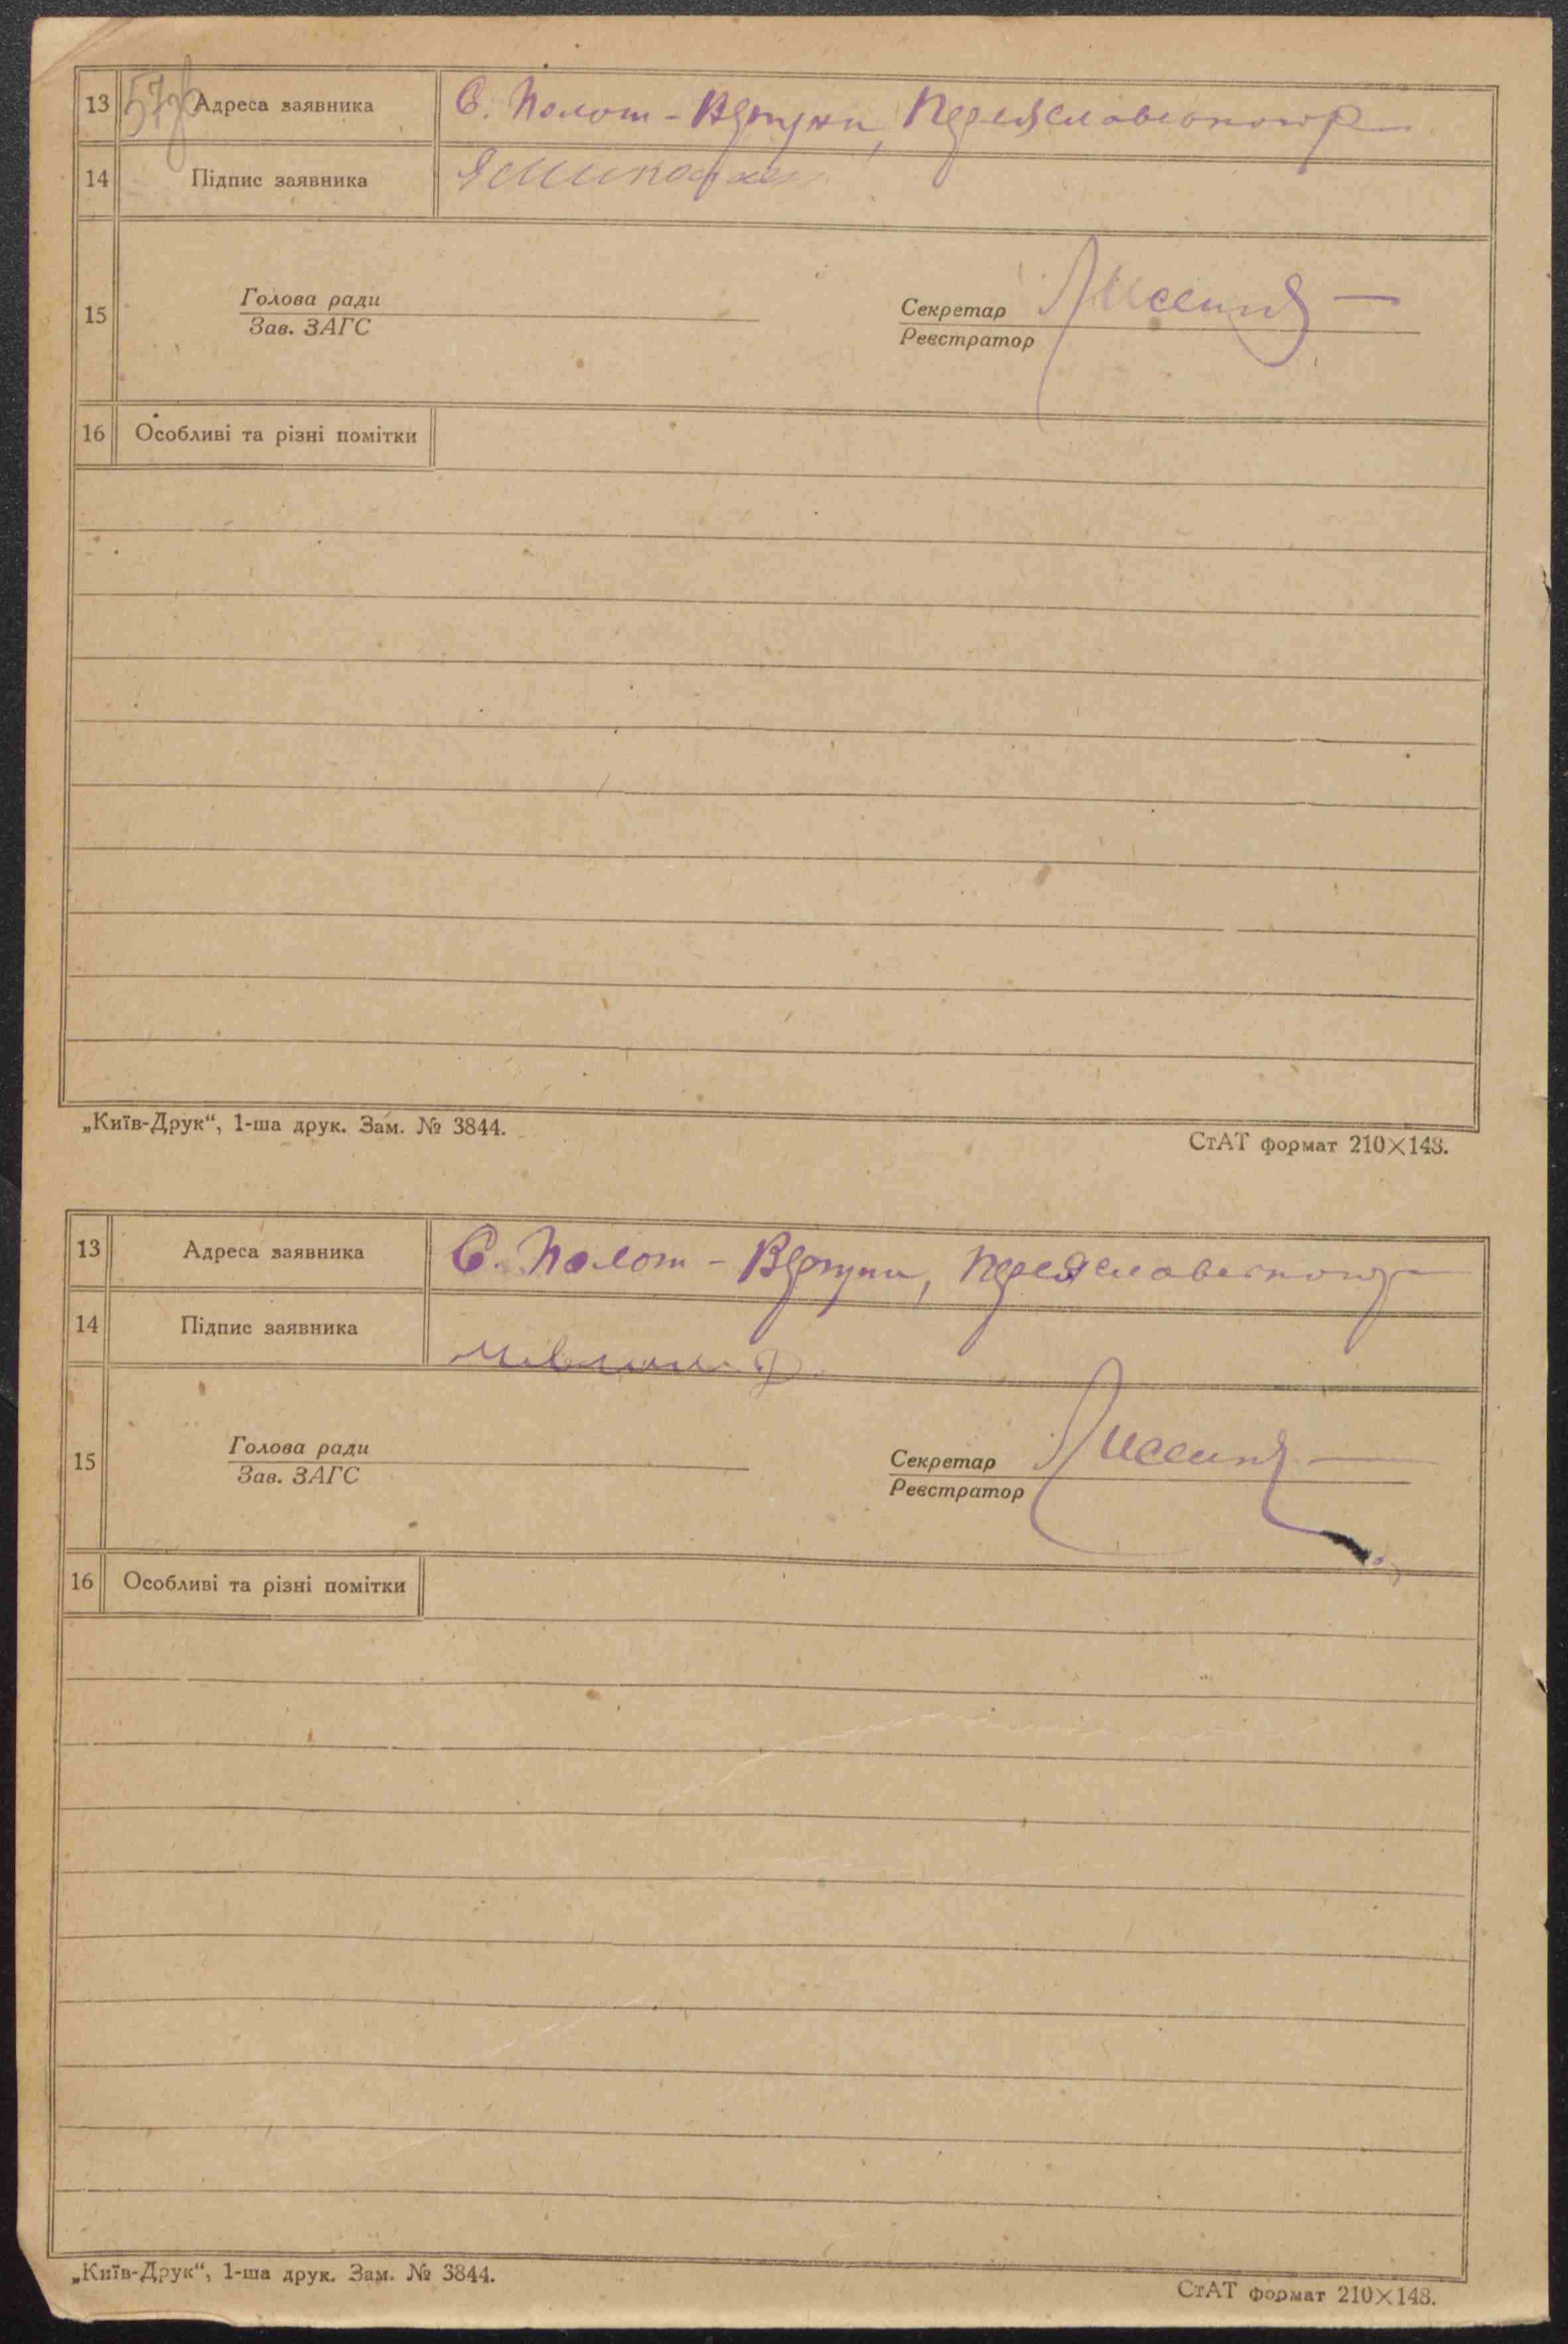 13 Адреса заявника С. Полот-Вергуни, Переяславського р
14 Підпис заявника
15 Голова ради
Зав. ЗАГС
Секретар
Реєстратор
16 Особливі та різні помітки
„Київ-Друк“, 1-ша друк. Зам. № 3844.
СтАТ формат 210×148.
13 Адреса заявника С. Полот-Вергуни, Переяславського р
14 Підпис заявника
15 Голова ради
Зав. ЗАГС
Секретар
Реєстратор
16 Особливі та різні помітки
„Київ-Друк“, 1-ша друк. Зам. № 3844.
СтАТ формат 210×148.